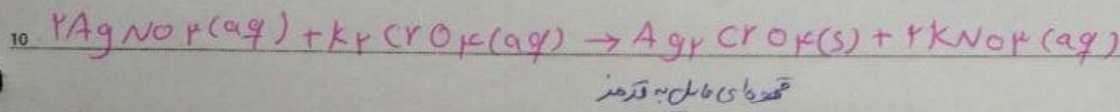 10 ۲AgNO۳(aq) + k۲CrO۴(aq) → Ag۲CrO۴(s) + ۲kNO۳(aq)
قهوه‌ای مایل به قرمز